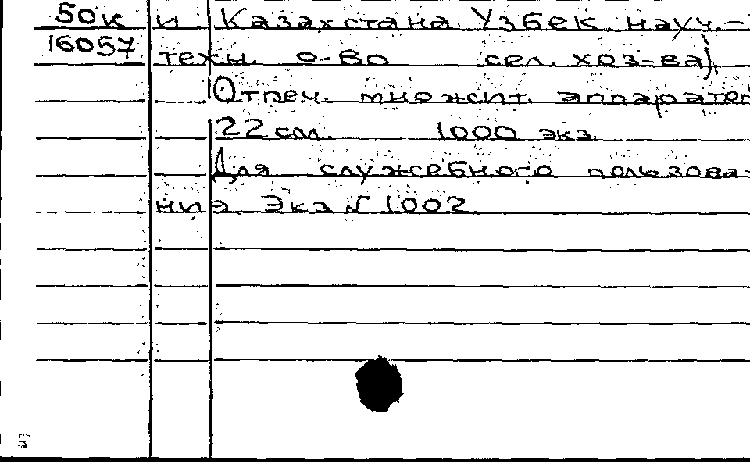 50к и Казахстана Узбек. науч.-
16057 техн. о-во сел. хоз-ва).
Отпеч. множит. аппарател
22 см. 1000 экз.
Для служебного пользова-
ния. Экз N 1002